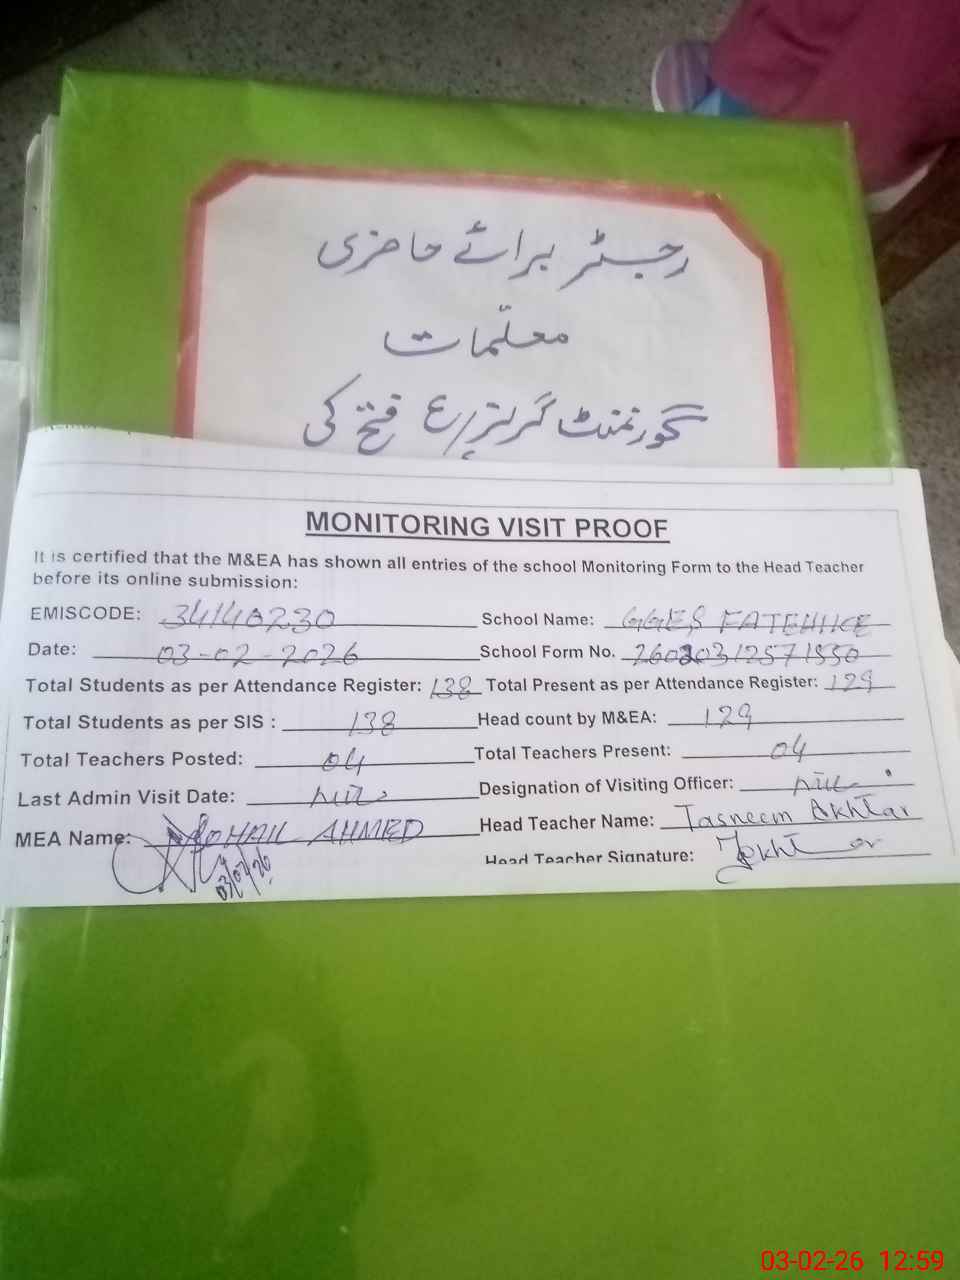 رجسٹر برائے حاضری
معلّمات
گورنمنٹ گرلز ع فتح کی
MONITORING VISIT PROOF
It is certified that the M&EA has shown all entries of the school Monitoring Form to the Head Teacher
before its online submission:
EMISCODE: 34140230 School Name: GGES FATEHKE
Date: 03-02-2026 School Form No.
Total Students as per Attendance Register: 138 Total Present as per Attendance Register: 129
Total Students as per SIS : 138 Head count by M&EA: 129
Total Teachers Posted: 04 Total Teachers Present: 04
Last Admin Visit Date: Nil Designation of Visiting Officer: Nil
MEA Name: SOHAIL AHMED Head Teacher Name: Tasneem Akhtar
03/02/26 Head Teacher Signature:
03-02-26 12:59